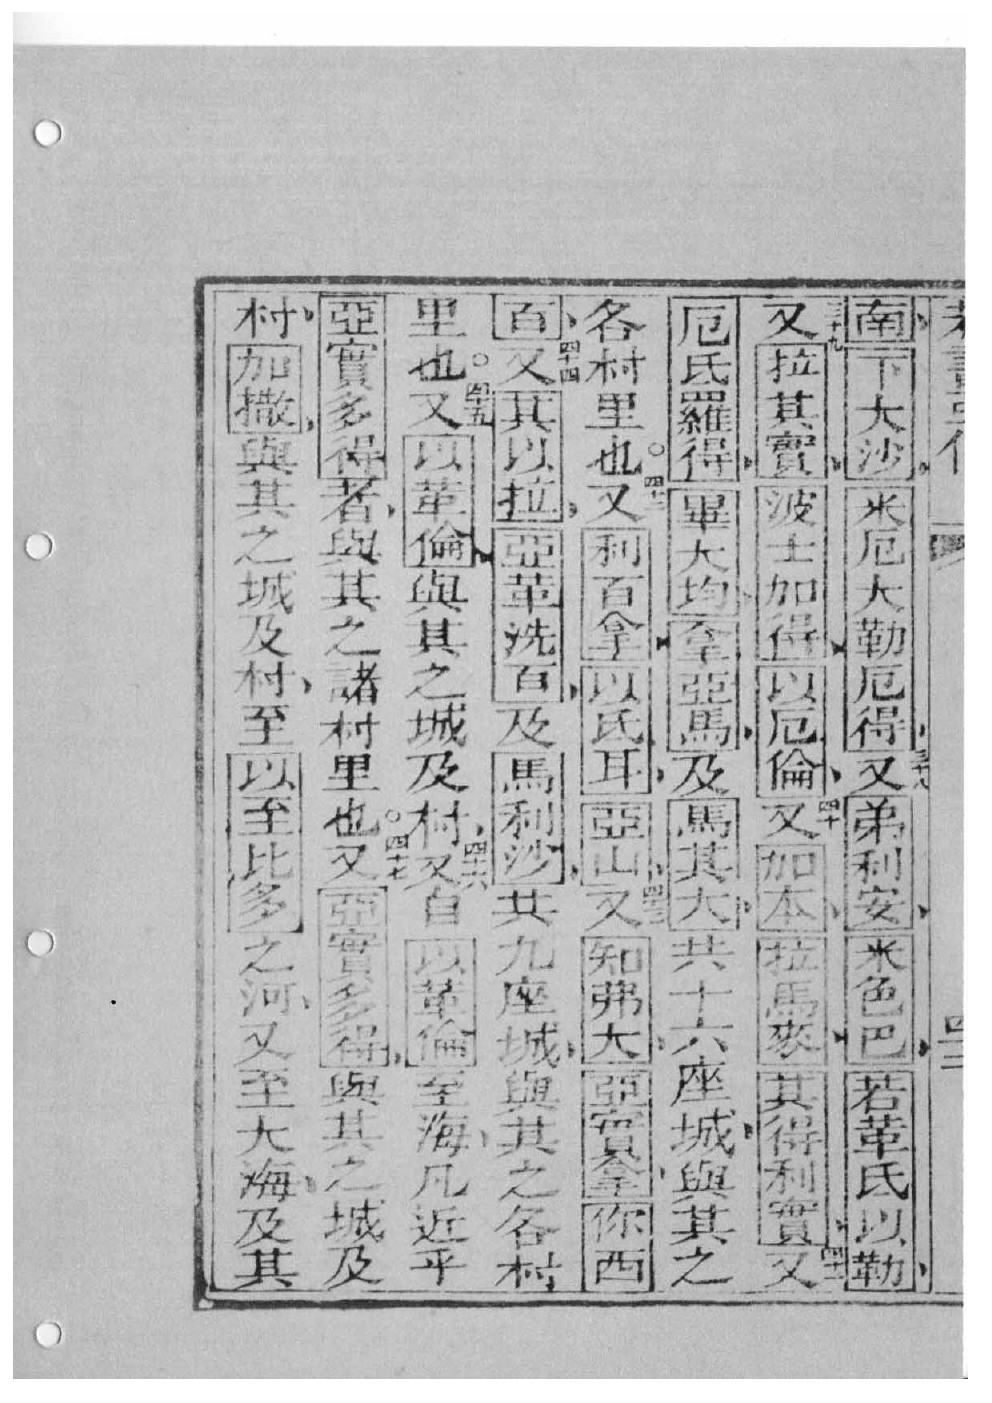 南下大沙米厄大勒厄得又三十八弟利安米色巴若革氏以勒
三十九又拉其實波士加得以厄倫又四十加本拉馬麥其得利實又四十一
厄氏羅得畢大均拿亞馬及馬其大共十六座城與其之
各村里也○又四十二利百拿以氏耳亞山又四十三知弗大亞實拿你西
百又四十四其以拉亞革洗百及馬利沙共九座城與其之各村
里也○又四十五以革倫與其之城及村又四十六自以革倫至海凡近乎
亞實多得者與其之諸村里也○又四十七亞實多得與其之城及
村加撒與其之城及村至以至比多之河又至大海及其